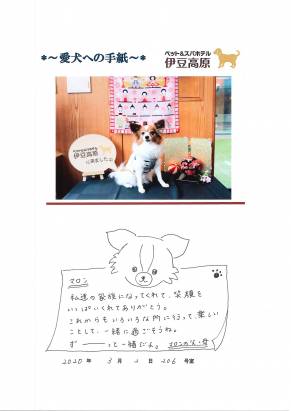 *～愛犬への手紙～*
ペット&スパホテル
伊豆高原
伊豆高原
に来ました
マロン
私達の家族になってくれて、笑顔を
いっぱいくれてありがとう。
これからもいろいろな所に行って、楽しい
ことして、一緒に過ごそうね。
ず――っと一緒だよ。マロンの父・母
2020年 3月 2日 206号室